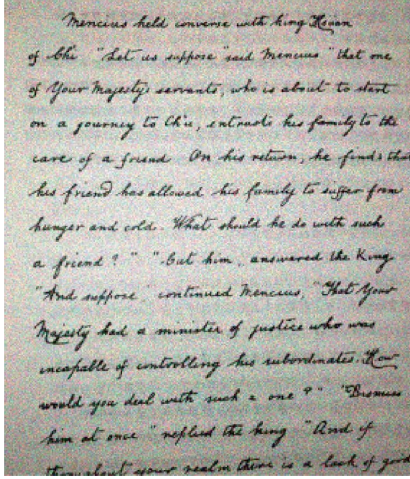 Mencius held converse with king Hsuan
of Chi "Let us suppose" said Mencius "that one
of Your Majesty's servants, who is about to start
on a journey to Ch'u, entrusts his family to the
care of a friend. On his return, he finds that
his friend has allowed his family to suffer from
hunger and cold. What should he do with such
a friend?" "Cut him, answered the King
"And suppose" continued Mencius, "That Your
Majesty had a minister of justice who was
incapable of controlling his subordinates. How
would you deal with such a one?" "Dismiss
him at once" replied the king "And if
throughout your realm there is a lack of good